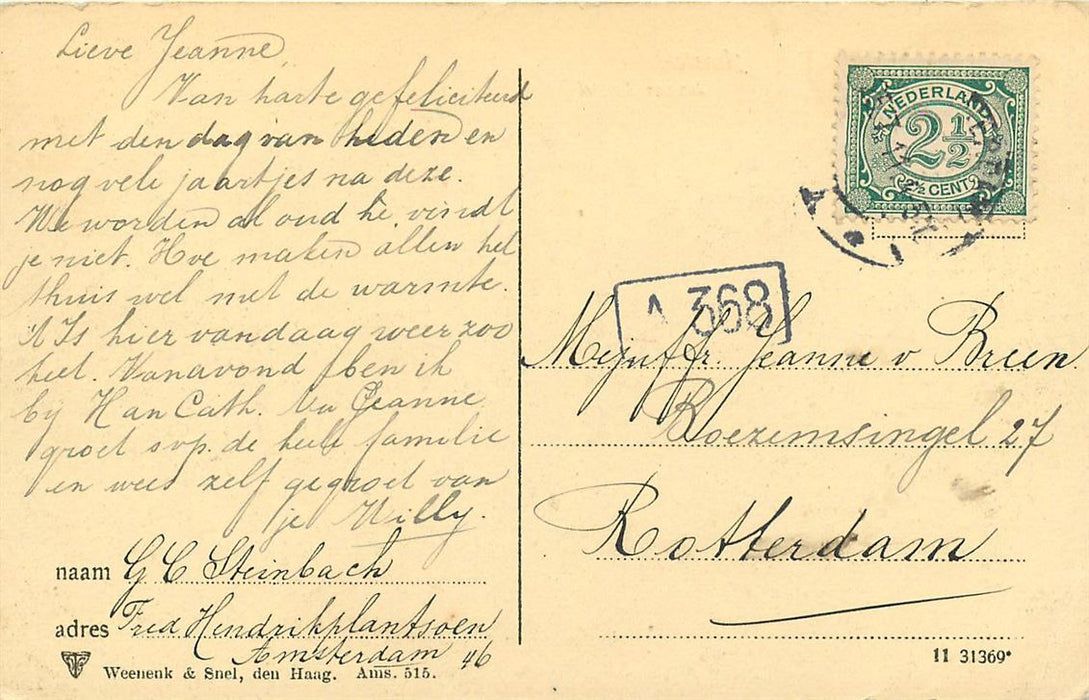 Lieve Jeanne,
Van harte gefeliciteerd
met den dag van heden en
nog vele jaartjes na deze.
We worden al oud hè, vindt
je niet. Hoe maken allen het
thuis wel met de warmte.
't Is hier vandaag weer zoo
heet. Vanavond ben ik
bij Han Cath. Nu Jeanne,
groet svp. de heele familie
en wees zelf gegroet van
je Willy.
naam G C Steinbach
adres Fred Hendrikplantsoen
Amsterdam 46
Weenenk & Snel, den Haag. Ams. 515.
NEDERLAND
2 1/2
2½ CENT
A 368
Mejuffr. Jeanne v Breen
Boezemsingel 27
Rotterdam
11 31369*